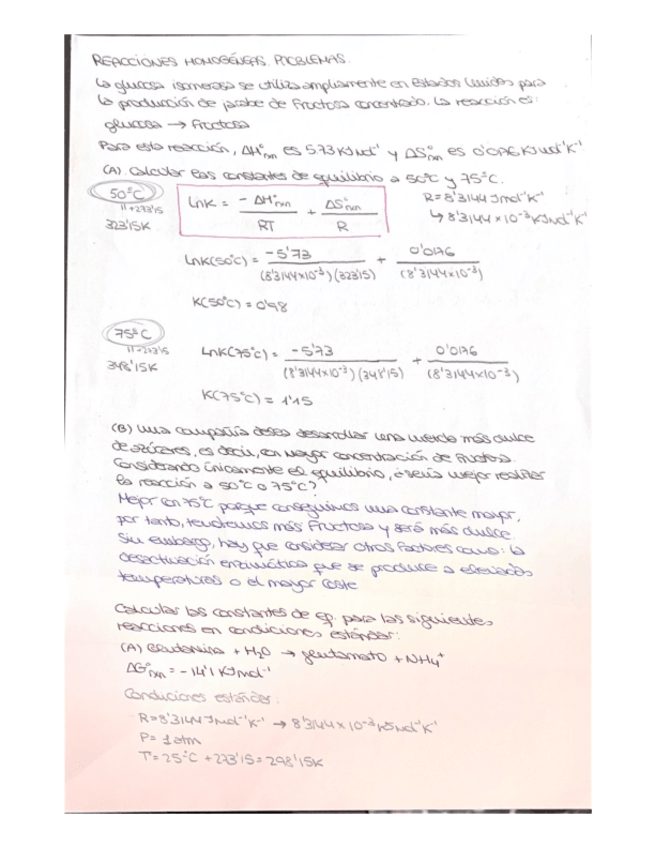 REACCIONES HOMOGÉNEAS. PROBLEMAS.
La glucosa isomerasa se utiliza ampliamente en Estados Unidos para
la producción de jarabe de fructosa concentrado. La reacción es:
glucosa → fructosa
Para esta reacción, ΔH°rxn es 5'73 KJmol⁻¹ y ΔS°rxn es 0'0176 KJmol⁻¹K⁻¹
(A) Calcular las constantes de equilibrio a 50ºC y 75ºC.
50ºC
11+273'15
323'15K
lnK = -ΔH°rxn / RT + ΔS°rxn / R
R=8'3144 Jmol⁻¹K⁻¹
↳ 8'3144 x 10⁻³ KJmol⁻¹K⁻¹
lnK(50ºC) = -5'73 / (8'3144x10⁻³)(323'15) + 0'0176 / (8'3144x10⁻³)
K(50ºC) = 0'98
75ºC
11+273'15
348'15K
lnK(75ºC) = -5'73 / (8'3144x10⁻³)(348'15) + 0'0176 / (8'3144x10⁻³)
K(75ºC) = 1'15
(B) Una compañía desea desarrollar una mezcla más dulce
de azúcares, es decir, con mayor concentración de fructosa.
Considerando únicamente el equilibrio, ¿sería mejor realizar
la reacción a 50ºC o 75ºC?
Mejor con 75ºC porque conseguimos una constante mayor,
por tanto, tendremos más fructosa y será más dulce.
Sin embargo, hay que considerar otros factores como: la
desactivación enzimática que se produce a elevadas
temperaturas o el mayor coste
Calcular las constantes de eq. para las siguientes
reacciones en condiciones estándar:
(A) Glutamina + H₂O → glutamato + NH₄⁺
ΔG°rxn = -14'1 KJmol⁻¹
Condiciones estándar:
R=8'3144 Jmol⁻¹K⁻¹ → 8'3144 x 10⁻³ KJmol⁻¹K⁻¹
P= 1 atm
T= 25ºC +273'15 = 298'15K